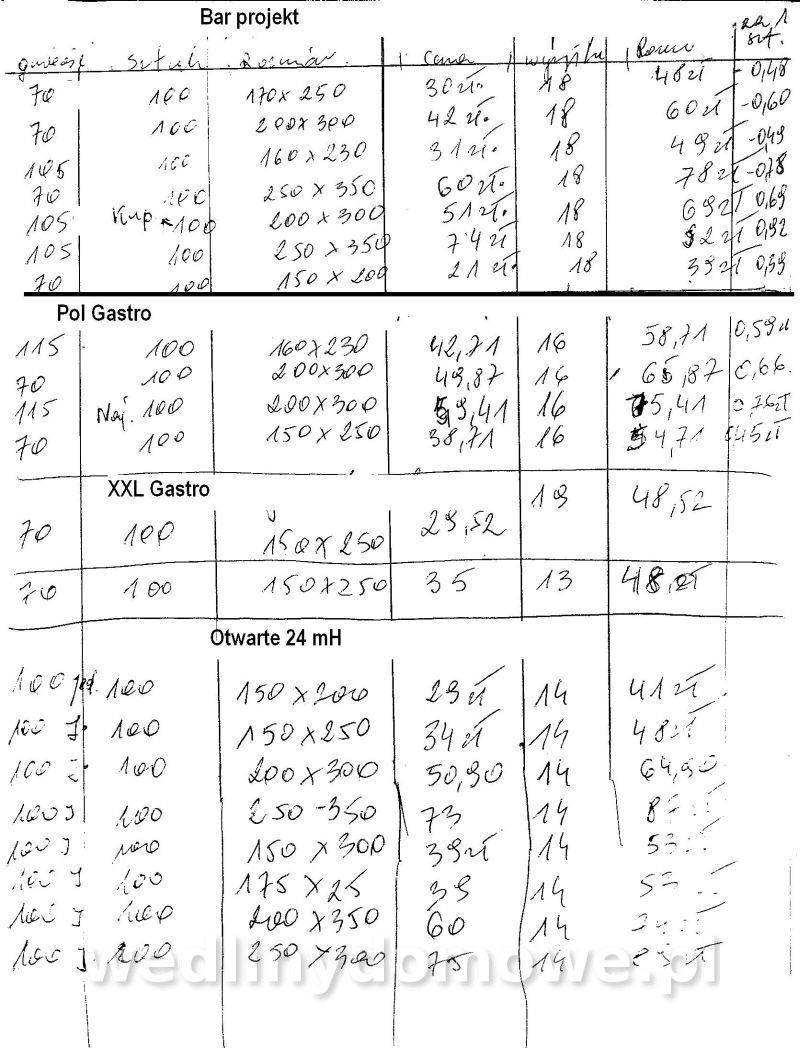 Bar projekt
sztuk cena za 1 szt.
70 100 170 x 250 30 zł. 18 48 zł - 0,48
70 100 200 x 300 42 zł. 18 60 zł - 0,60
105 100 160 x 230 31 zł. 18 49 zł - 0,49
70 100 250 x 350 60 zł. 18 78 zł - 0,78
105 100 200 x 300 51 zł. 18 69 zł 0,69
105 100 250 x 350 74 zł 18 92 zł 0,92
70 100 150 x 200 21 zł. 18 39 zł 0,39
Pol Gastro
115 100 160 x 230 42,71 16 58,71 0,59 zł
70 100 200 x 300 49,87 16 65,87 0,66
115 Naj. 100 200 x 300 59,41 16 75,41 0,76 zł
70 100 150 x 250 38,71 16 54,71 0,45 zł
XXL Gastro
70 100 150 x 250 29,52 19 48,52
70 100 150 x 250 35 13 48, zł
Otwarte 24 mH
100 jed. 100 150 x 200 29 zł 14 41 zł
100 J. 100 150 x 250 34 zł 14 48 zł
100 J. 100 200 x 300 50,90 14 64,90
100 J 100 250 - 350 73 14
100 J 100 150 x 300 39 zł 14 53
100 J 100 175 x 25 39 14 53
100 J 100 200 x 350 60 14
100 J 100 250 x 300 75 14
wedlinydomowe.pl